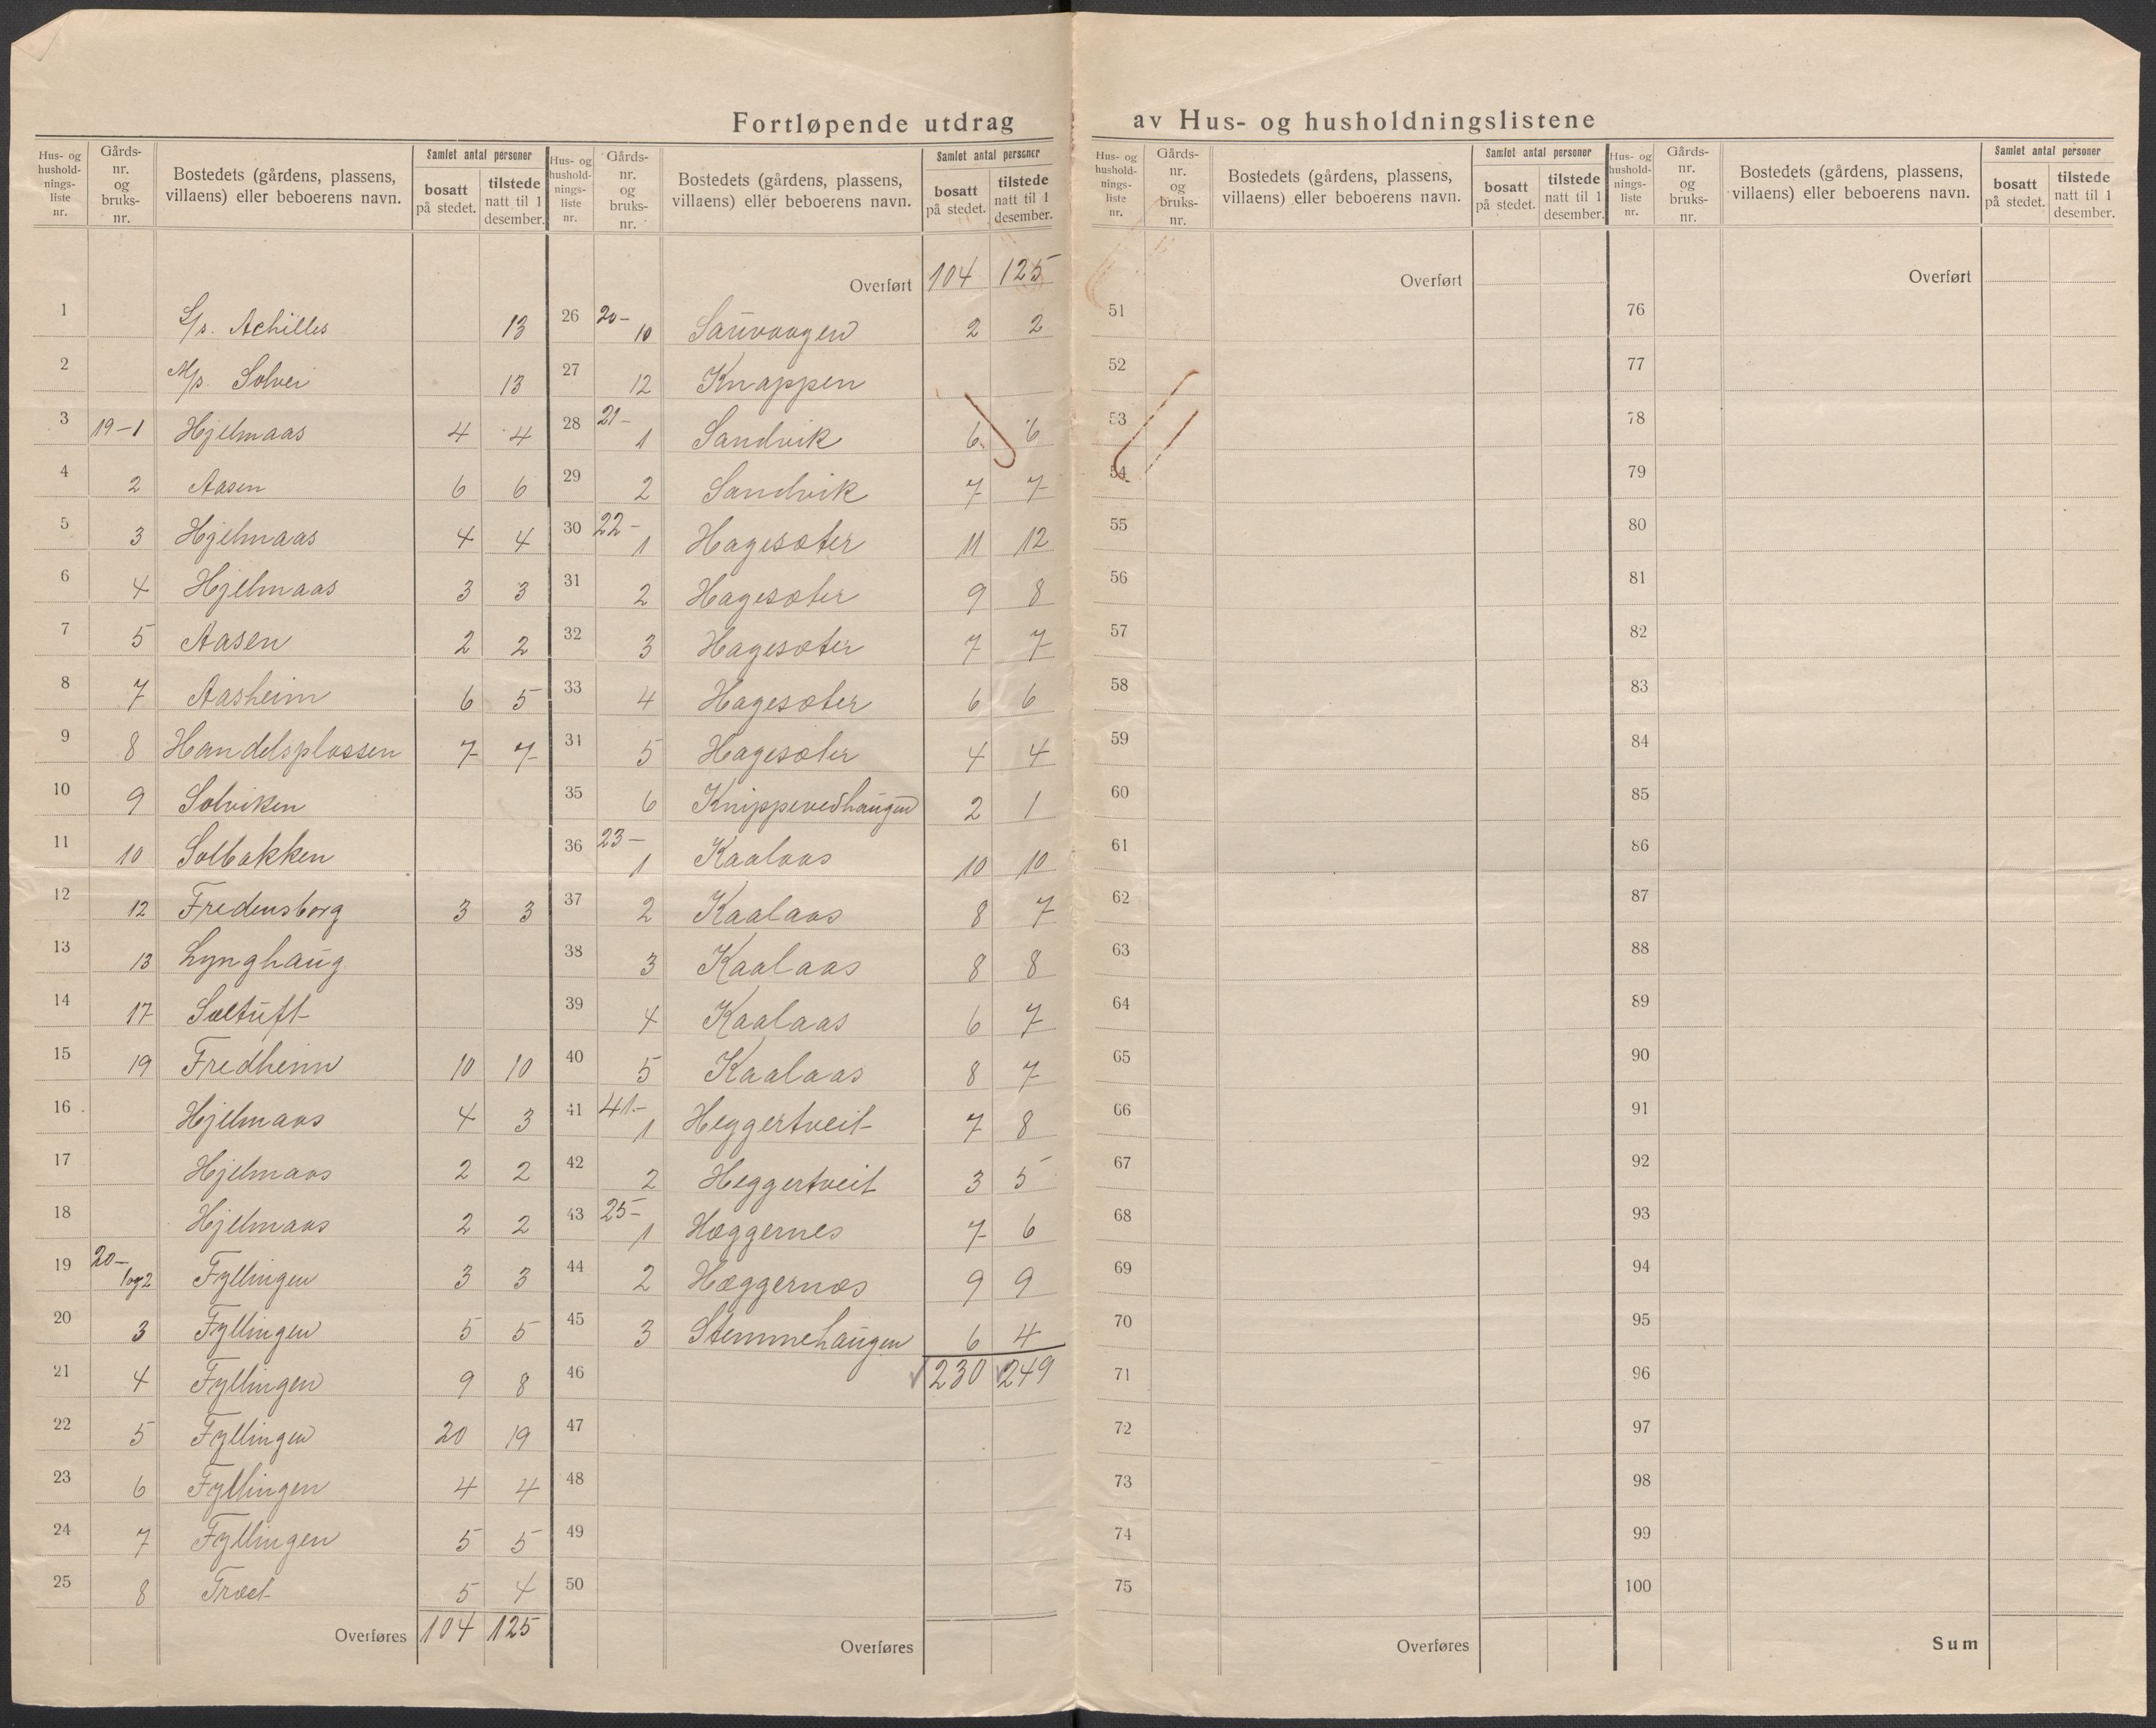 Fortløpende utdrag av Hus- og husholdningslistene
Hus- og hushold-nings-liste nr. | Gårds-nr. og bruks-nr. | Bostedets (gårdens, plassens, villaens) eller beboerens navn. | Samlet antal personer bosatt på stedet. | tilstede natt til 1 desember.
1 S/s. Achilles 13
2 M/s. Solvei 13
3 19-1 Hjelmaas 4 4
4 2 Aasen 6 6
5 3 Hjelmaas 4 4
6 4 Hjelmaas 3 3
7 5 Aasen 2 2
8 7 Aasheim 6 5
9 8 Handelsplassen 7 7
10 9 Solviken
11 10 Solbakken
12 12 Fredensborg 3 3
13 13 Lynghaug
14 17 Soltuft
15 19 Fredheim 10 10
16 Hjelmaas 4 3
17 Hjelmaas 2 2
18 Hjelmaas 2 2
19 20- 1og2 Fyllingen 3 3
20 3 Fyllingen 5 5
21 4 Fyllingen 9 8
22 5 Fyllingen 20 19
23 6 Fyllingen 4 4
24 7 Fyllingen 5 5
25 8 Træet 5 4
Overføres 104 125
Hus- og hushold-nings-liste nr. | Gårds-nr. og bruks-nr. | Bostedets (gårdens, plassens, villaens) eller beboerens navn. | Samlet antal personer bosatt på stedet. | tilstede natt til 1 desember.
Overført 104 125
26 20- 10 Sauvaagen 2 2
27 12 Knappen
28 21- 1 Sandvik 6 6
29 2 Sandvik 7 7
30 22- 1 Hagesæter 11 12
31 2 Hagesæter 9 8
32 3 Hagesæter 7 7
33 4 Hagesæter 6 6
31 5 Hagesæter 4 4
35 6 Knippevedhaugen 2 1
36 23- 1 Kaalaas 10 10
37 2 Kaalaas 8 7
38 3 Kaalaas 8 8
39 4 Kaalaas 6 7
40 5 Kaalaas 8 7
41 41- 1 Heggertveit 7 8
42 2 Heggertveit 3 5
43 25- 1 Hæggernes 7 6
44 2 Hæggernæs 9 9
45 3 Stemmehaugen 6 4
46 230 249
47
48
49
50
Overføres
Hus- og hushold-nings-liste nr. | Gårds-nr. og bruks-nr. | Bostedets (gårdens, plassens, villaens) eller beboerens navn. | Samlet antal personer bosatt på stedet. | tilstede natt til 1 desember.
Overført
51
52
53
54
55
56
57
58
59
60
61
62
63
64
65
66
67
68
69
70
71
72
73
74
75
Overføres
Hus- og hushold-nings-liste nr. | Gårds-nr. og bruks-nr. | Bostedets (gårdens, plassens, villaens) eller beboerens navn. | Samlet antal personer bosatt på stedet. | tilstede natt til 1 desember.
Overført
76
77
78
79
80
81
82
83
84
85
86
87
88
89
90
91
92
93
94
95
96
97
98
99
100
Sum